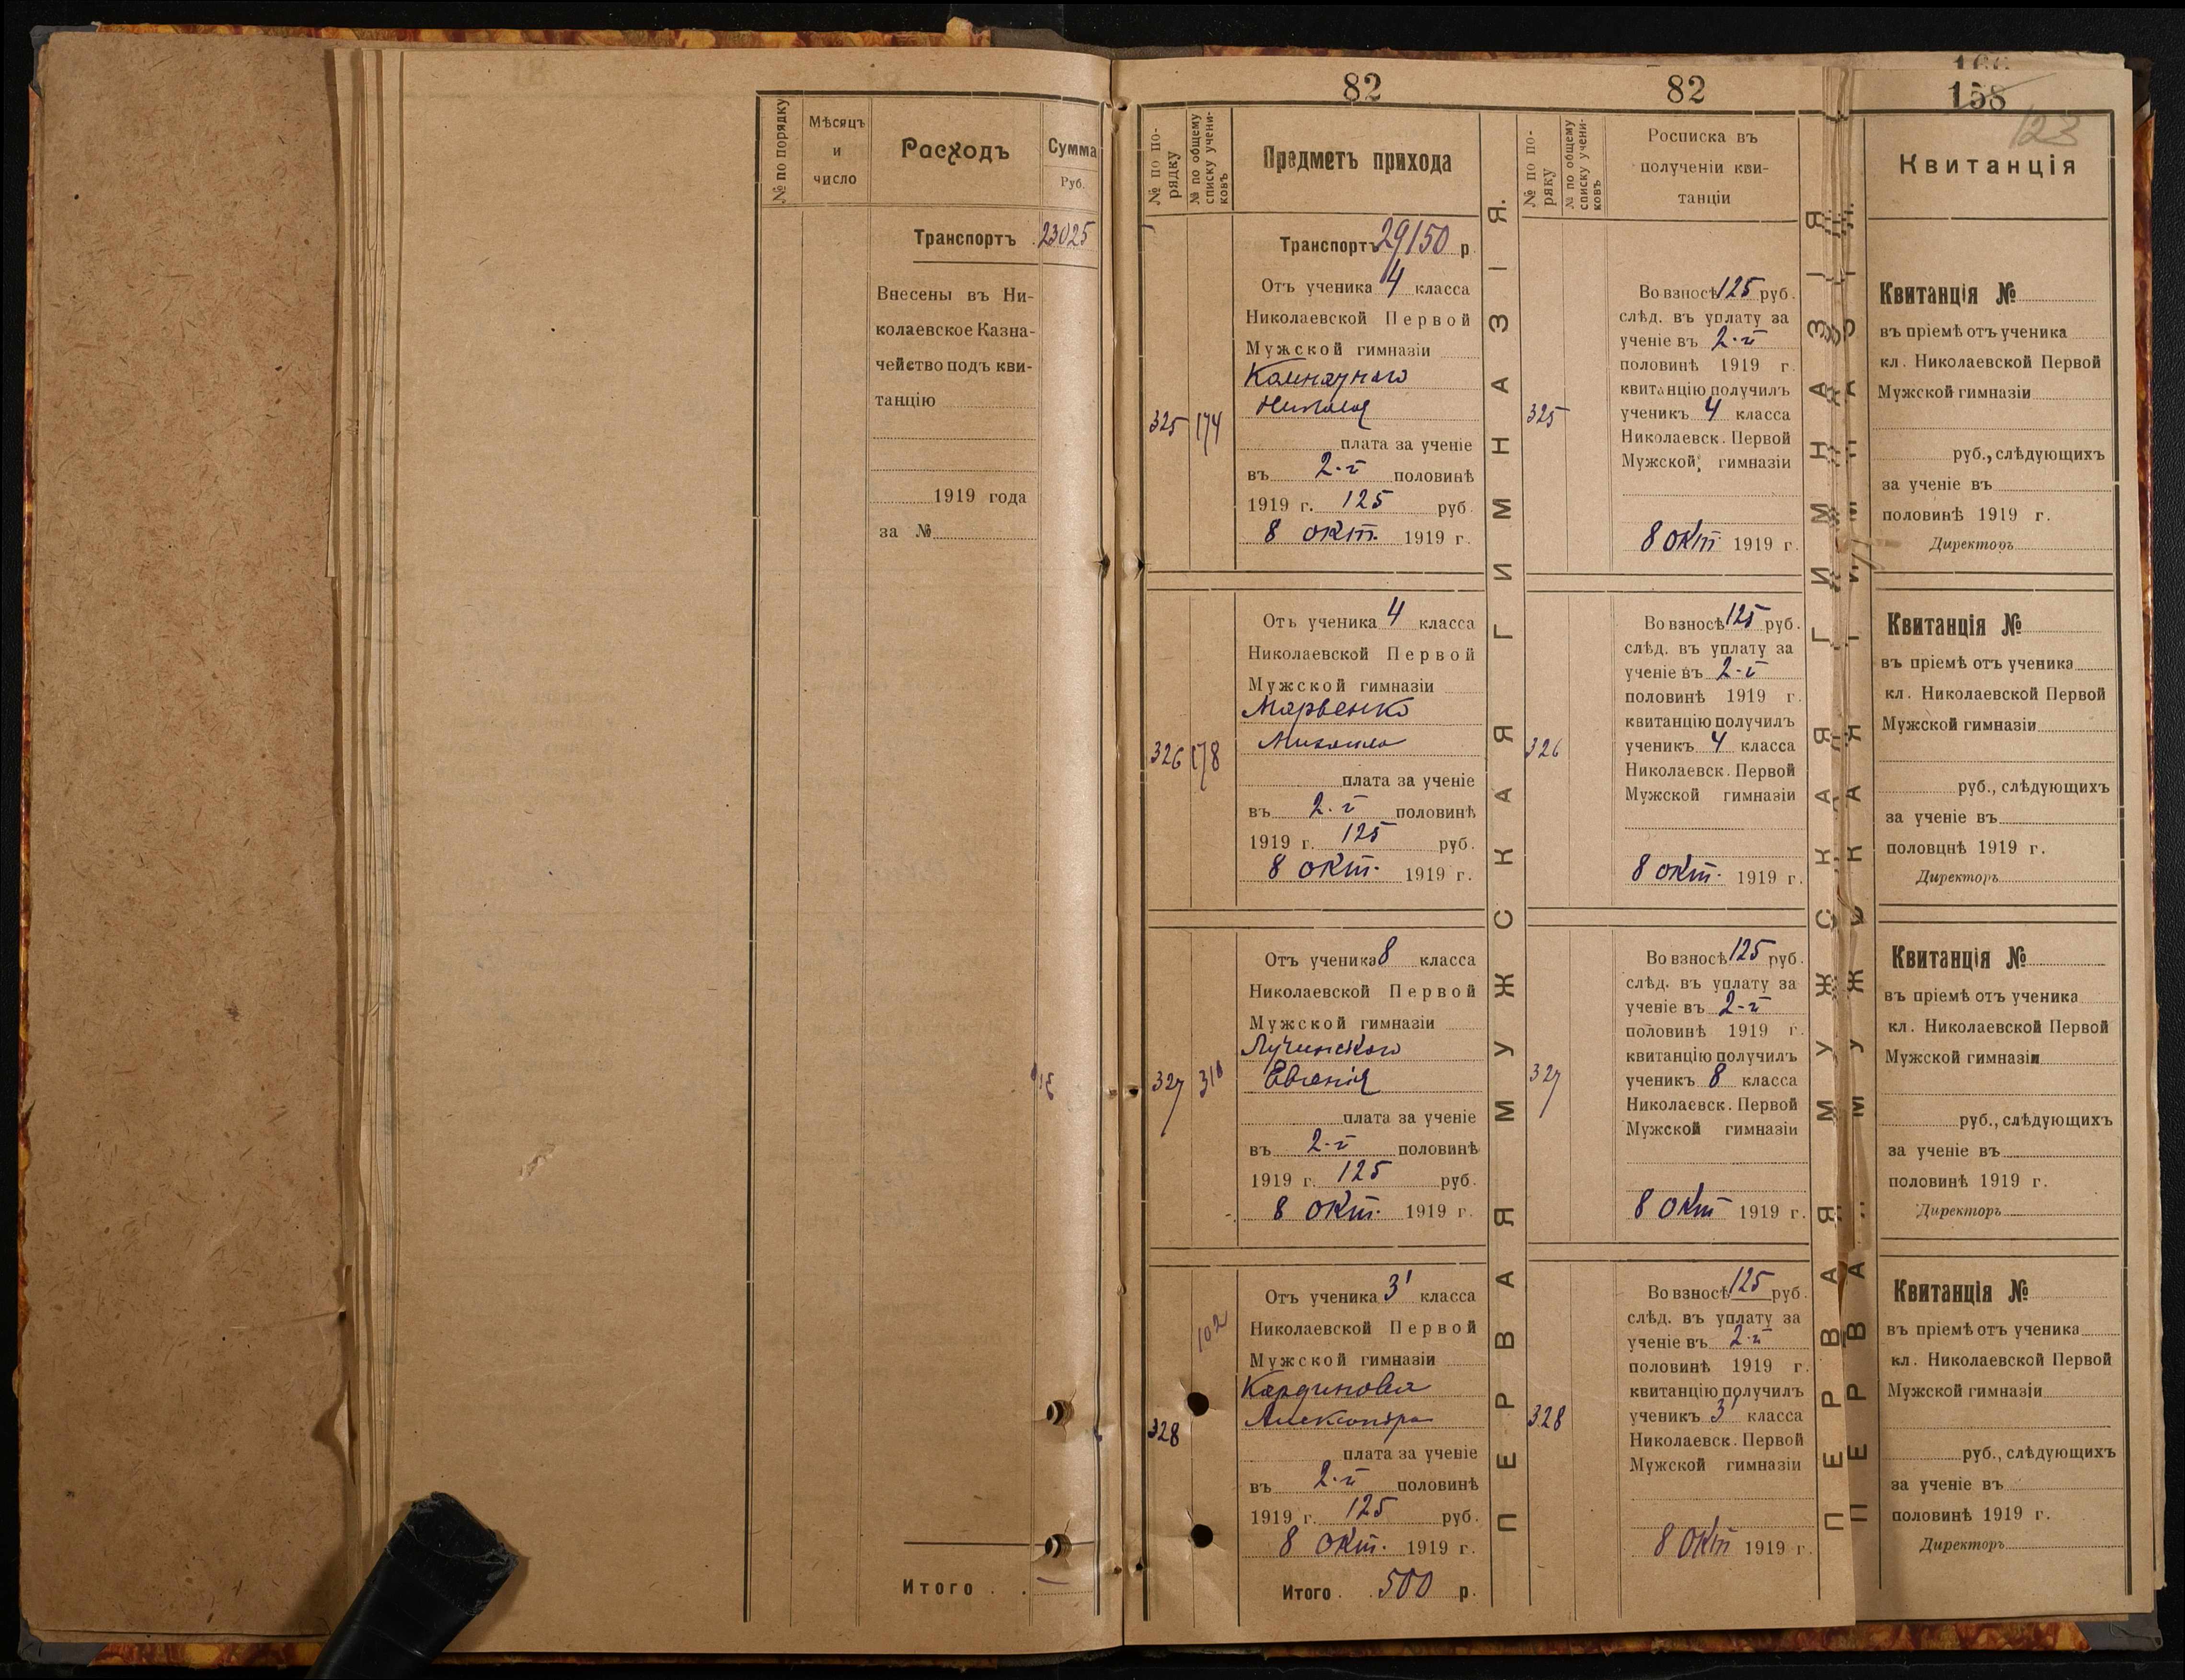 № по порядку
Мѣсяцъ
и
число
Расходъ
Сумма
Руб.
Транспортъ 23025
Внесены въ Ни-
колаевское Казна-
чейство подъ кви-
танцію
1919 года
за №
Итого . . —
82
№ по по-
рядку
№ по общему
списку учени-
ковъ
Предметъ прихода
Транспортъ 29150 р.
325
174
Отъ ученика 4 класса
Николаевской Первой
Мужской гимназіи
Николая
плата за ученіе
въ 2-й половинѣ
1919 г. 125 руб.
8 окт. 1919 г.
326
178
Отъ ученика 4 класса
Николаевской Первой
Мужской гимназіи
Марченко
Михаила
плата за ученіе
въ 2-й половинѣ
1919 г. 125 руб.
8 окт. 1919 г.
327
Отъ ученика 8 класса
Николаевской Первой
Мужской гимназіи
Лучинского
Евгенія
плата за ученіе
въ 2-й половинѣ
1919 г. 125 руб.
8 окт. 1919 г.
328
102
Отъ ученика 3' класса
Николаевской Первой
Мужской гимназіи
Кардинова
Александра
плата за ученіе
въ 2-й половинѣ
1919 г. 125 руб.
8 окт. 1919 г.
Итого . . 500 р.
ПЕРВАЯ МУЖСКАЯ ГИМНАЗІЯ.
82
№ по по-
ряку
№ по общему
списку учени-
ковъ
Росписка въ
полученіи кви-
танціи
325
Во взносѣ 125 руб.
слѣд. въ уплату за
ученіе въ 2-й
половинѣ 1919 г.
квитанцію получилъ
ученикъ 4 класса
Николаевск. Первой
Мужской гимназіи
8 окт 1919 г.
326
Во взносѣ 125 руб.
слѣд. въ уплату за
ученіе въ 2-й
половинѣ 1919 г.
квитанцію получилъ
ученикъ 4 класса
Николаевск. Первой
Мужской гимназіи
8 окт. 1919 г.
327
Во взносѣ 125 руб.
слѣд. въ уплату за
ученіе въ 2-й
половинѣ 1919 г.
квитанцію получилъ
ученикъ 8 класса
Николаевск. Первой
Мужской гимназіи
8 окт 1919 г.
328
Во взносѣ 125 руб.
слѣд. въ уплату за
ученіе въ 2-й
половинѣ 1919 г.
квитанцію получилъ
ученикъ 3' класса
Николаевск. Первой
Мужской гимназіи
8 окт 1919 г.
ПЕРВАЯ МУЖСКАЯ ГИМНАЗІЯ
158
123
Квитанція
Квитанція №
въ пріемѣ отъ ученика
кл. Николаевской Первой
Мужской гимназіи
руб., слѣдующихъ
за ученіе въ
половинѣ 1919 г.
Директоръ
Квитанція №
въ пріемѣ отъ ученика
кл. Николаевской Первой
Мужской гимназіи
руб., слѣдующихъ
за ученіе въ
половцнѣ 1919 г.
Директоръ
Квитанція №
въ пріемѣ отъ ученика
кл. Николаевской Первой
Мужской гимназіи
руб., слѣдующихъ
за ученіе въ
половинѣ 1919 г.
Директоръ
Квитанція №
въ пріемѣ отъ ученика
кл. Николаевской Первой
Мужской гимназіи
руб., слѣдующихъ
за ученіе въ
половинѣ 1919 г.
Директоръ